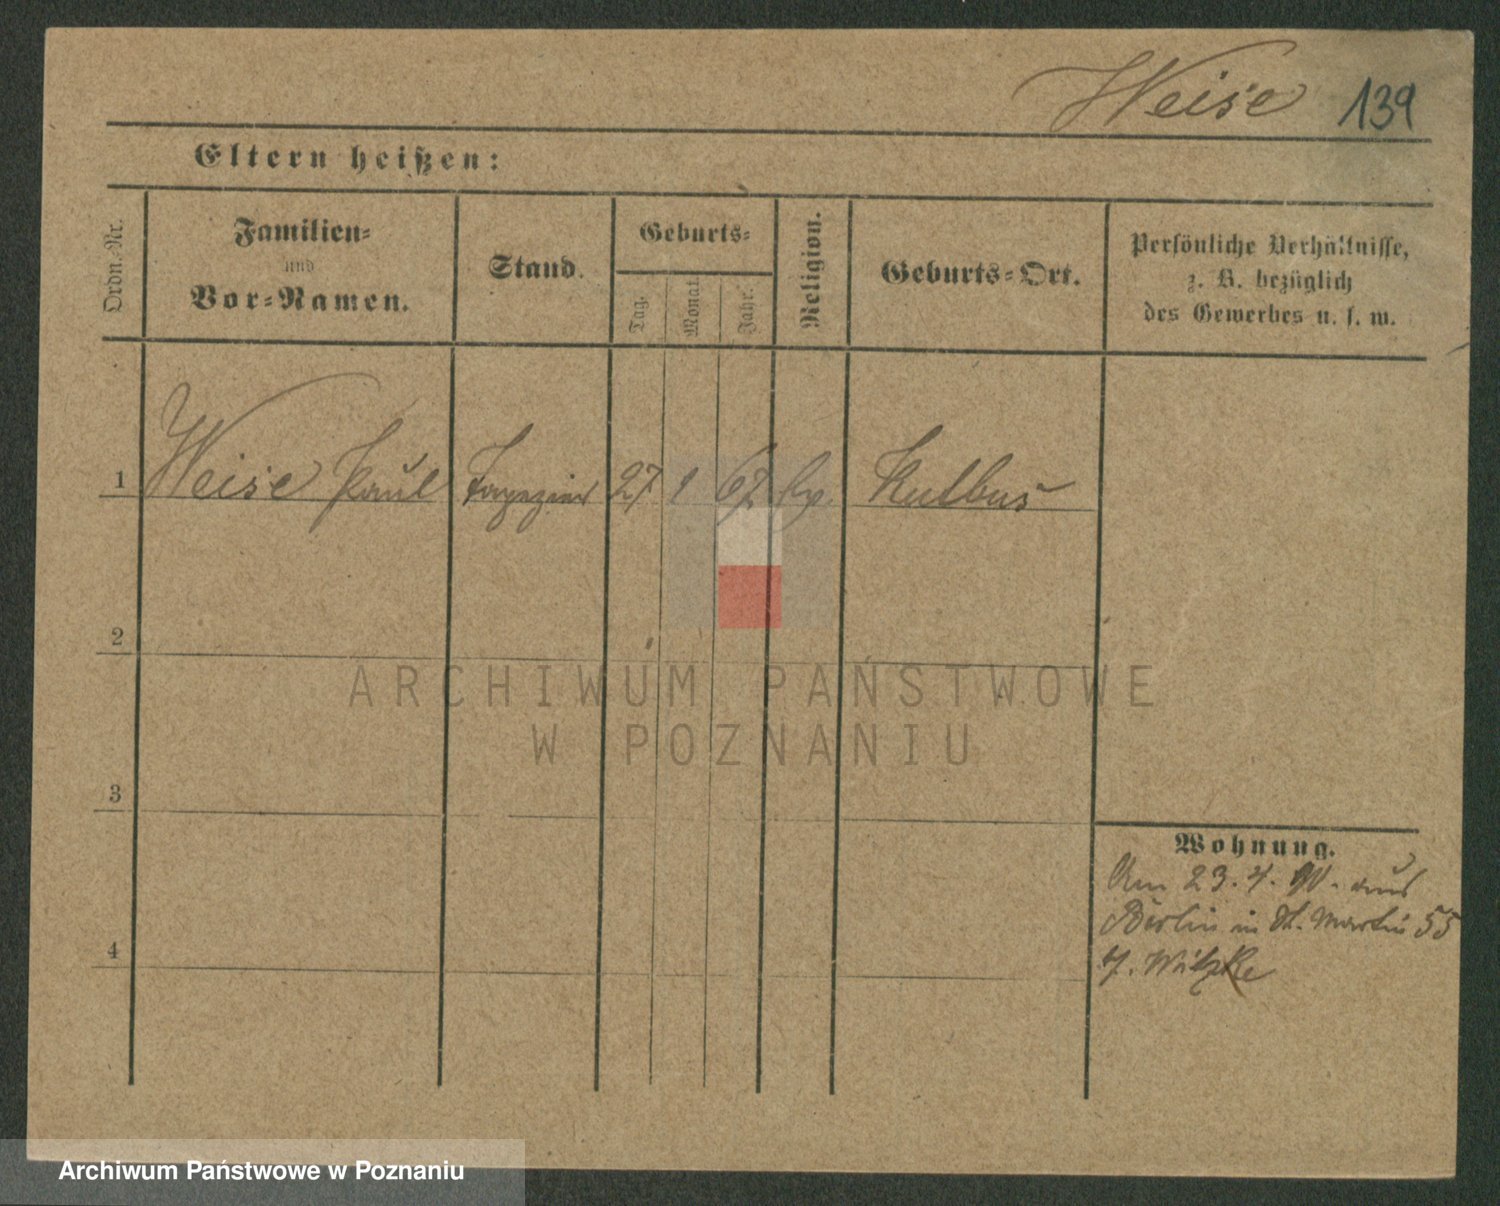 Weise 139
Eltern heißen:
Ordn.-Nr.
Familien-
und
Vor-Namen.
Stand.
Geburts-
Tag.
Monat.
Jahr.
Religion.
Geburts-Ort.
Persönliche Verhältnisse,
z. B. bezüglich
des Gewerbes u. s. w.
1 Weise Paul Tapezier 27 1 67
2
3
4
Wohnung.
Am 23. 4. 90. aus
Berlin in St. Martin 55
ARCHIWUM PAŃSTWOWE
W POZNANIU
Archiwum Państwowe w Poznaniu